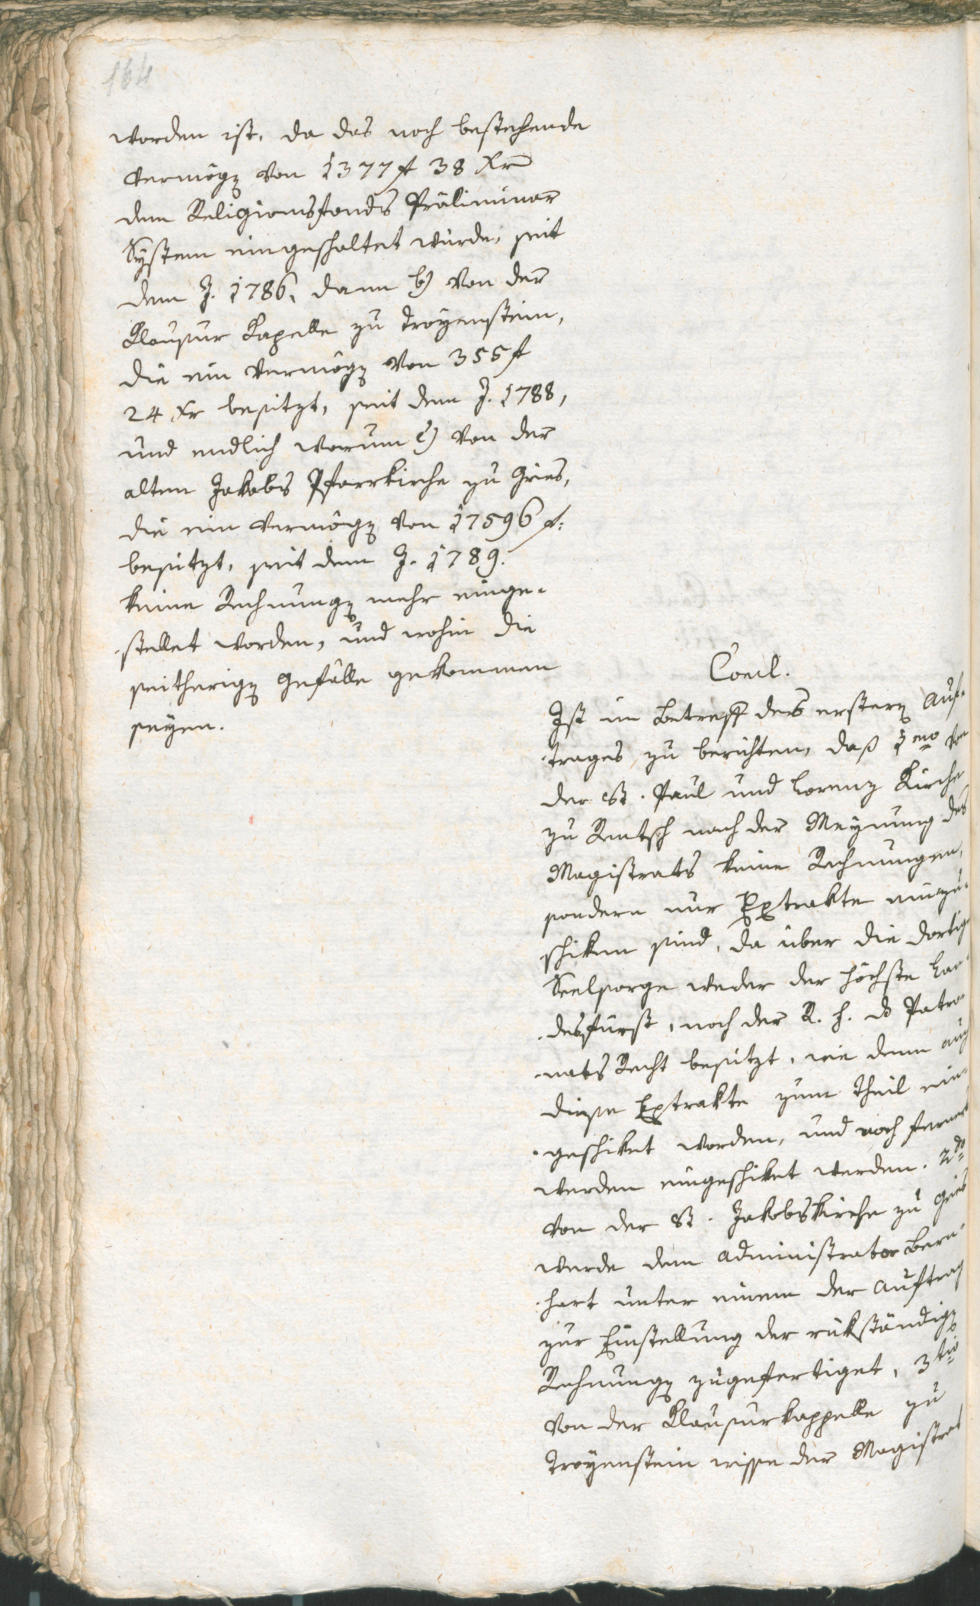 164
worden ist, da das noch bestehende
Vermög[en] von 1377 f 38 Xr
dem Religionsfonds Präliminar
System eingeschaltet wurde, seit
dem J. 1786, dann b) von der
Klausur Kapelle zu Troyenstein,
die ein Vermög[en] von 355 f
24 Xr besitzt, seit dem J. 1788,
und endlich warum c) von der
alten Jakobs Pfarrkirche zu Gries,
die ein Vermög[en] von 17596 f:
besitzt, seit dem J. 1789.
keine Rechnung[en] mehr einge-
stellet worden, und wohin die
seitherig[en] Gefälle gekommen
seyen.
Concl.
Ist im Betreff des erster[en] Auf-
trages zu berichten, daß 1mo von
der St. Paul und Lorenz Kirche
zu Rentsch nach der Meynung des
Magistrats keine Rechnungen,
sondern nur Extrakte einzu-
schiken sind, da über die dortige
Seelsorge weder der höchste Lan-
desfürst, noch der R. f. das Patro-
nats Recht besitzt, wie dann auch
diese Extrakte zum Theil ein-
geschiket worden, und noch ferner
werden eingeschiket werden. 2do
von der St. Jakobskirche zu Gries
werde dem Administrator Bern-
hart unter einem der Auftrag
zur Einstellung der rükständig[en]
Rechnung[en] zugefertiget, 3tio
von der Klausurkappelle zu
Troyenstein wisse der Magistrat